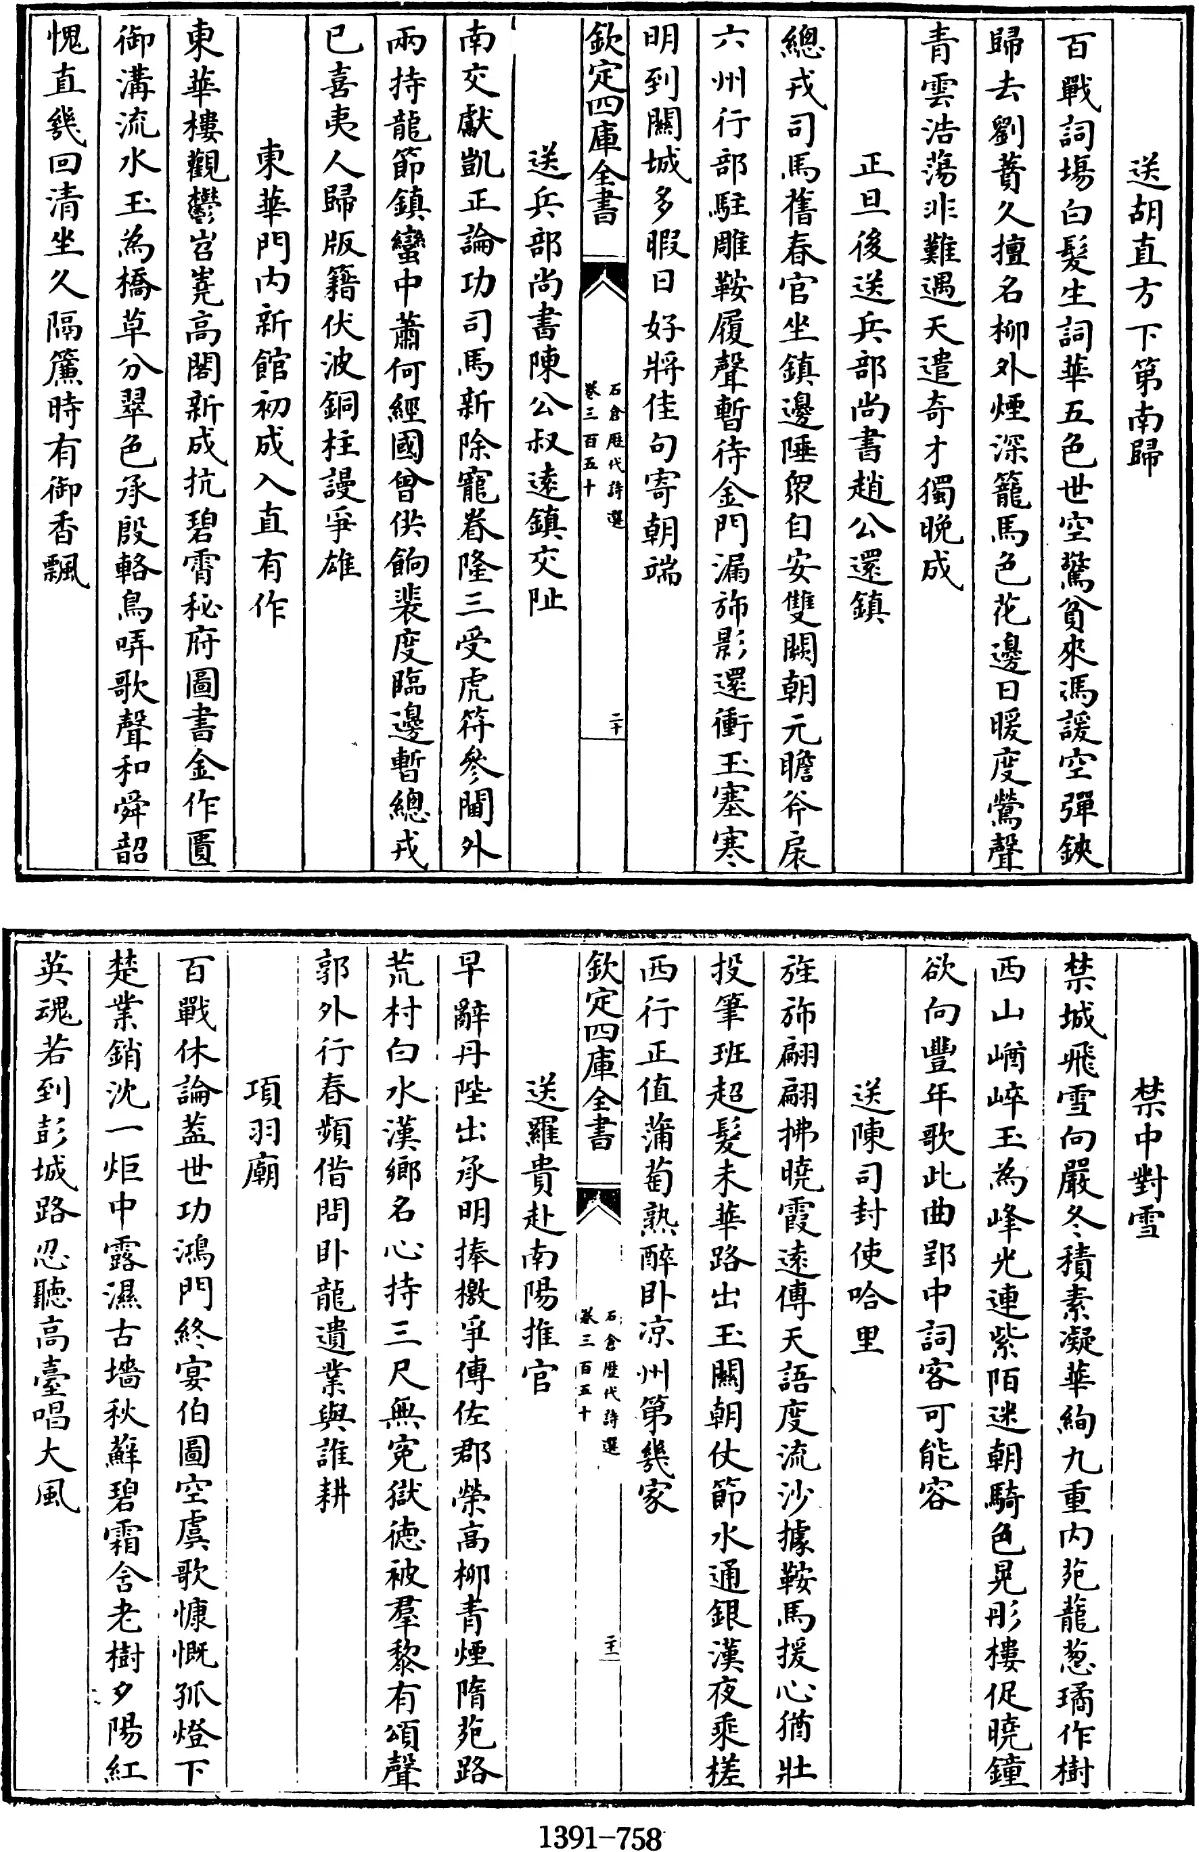 送胡直方下第南歸
百戰詞場白髮生詞華五色世空驚貧來馮諼空彈鋏
歸去劉蕡久擅名柳外煙深籠馬色花邊日暖度鶯聲
青雲浩蕩非難遇天遣奇才獨晚成
正旦後送兵部尚書趙公還鎮
總戎司馬舊春官坐鎮邊陲衆自安雙闕朝元瞻斧扆
六州行部駐雕鞍履聲暫待金門漏斾影還衝玉塞寒
明到關城多暇日好將佳句寄朝端
欽定四庫全書
石倉歷代詩選
卷三百五十
二十
送兵部尚書陳公叔遠鎮交阯
南交獻凱正論功司馬新除寵眷隆三受虎符參閫外
兩持龍節鎮蠻中蕭何經國曾供餉裴度臨邊暫總戎
已喜夷人歸版籍伏波銅柱謾爭雄
東華門內新館初成入直有作
東華樓觀鬱岧嶤高閣新成抗碧霄秘府圖書金作匱
御溝流水玉為橋草分翠色承殷輅鳥哢歌聲和舜韶
愧直幾回清坐久隔簾時有御香飄
禁中對雪
禁城飛雪向嚴冬積素凝華絢九重內苑蘢葱璚作樹
西山崷崪玉為峰光連紫陌迷朝騎色晃彤樓促曉鐘
欲向豐年歌此曲郢中詞客可能容
送陳司封使哈里
旌斾翩翩拂曉霞遠傳天語度流沙據鞍馬援心猶壯
投筆班超髮未華路出玉關朝仗節水通銀漢夜乘槎
西行正值蒲萄熟醉卧凉州第幾家
欽定四庫全書
石倉歷代詩選
卷三百五十
二十一
送羅貴赴南陽推官
早辭丹陛出承明捧檄爭傳佐郡榮高柳青煙隋苑路
荒村白水漢鄉名心持三尺無寃獄徳被羣黎有頌聲
郭外行春頻借問卧龍遺業與誰耕
項羽廟
百戰休論蓋世功鴻門終宴伯圖空虞歌慷慨孤燈下
楚業銷沈一炬中露濕古墻秋蘚碧霜含老樹夕陽紅
英魂若到彭城路忍聽高臺唱大風
1391-758